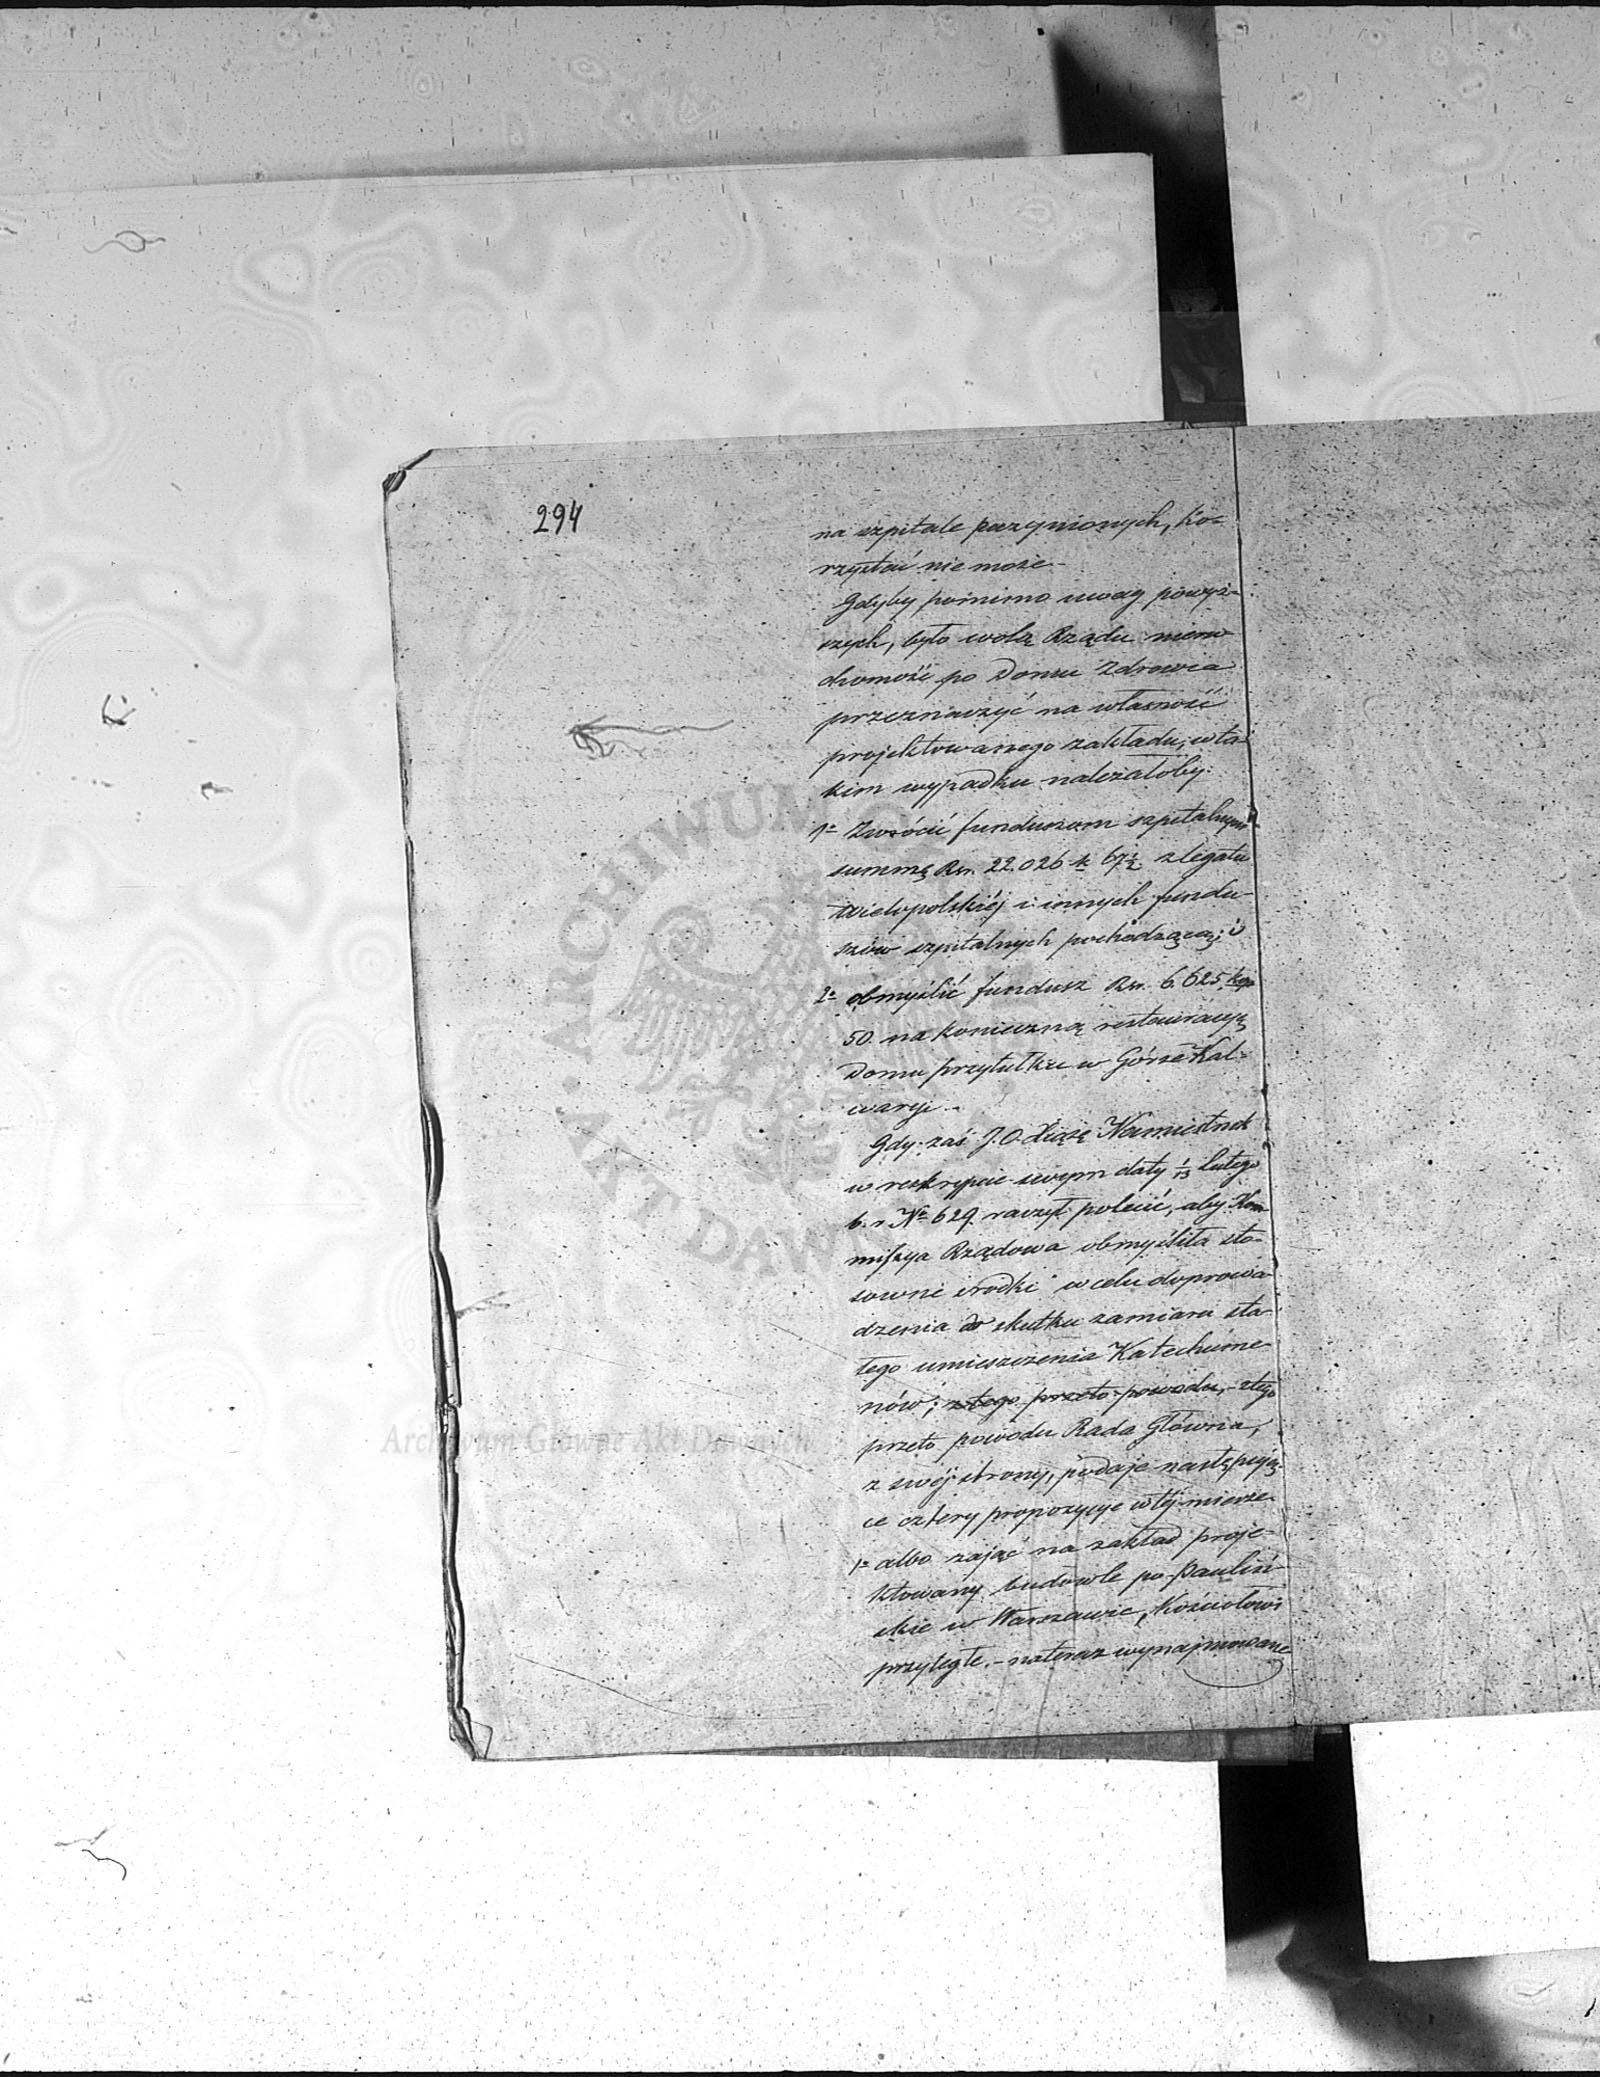 294
na szpitale poczynionych, ko-
rzystać nie może.
Gdyby pomimo uwag powyż-
szych, było wolą Rządu nieru
chomość po Domu Zdrowia
przeznaczyć na własność
projektowanego zakładu, w ta-
kim wypadku należałoby.
1o Zwrócić funduszom szpitalnym
summę Rsr. 22.026 k 67½ z legatu
Wielopolskiéj i innych fundu-
szów szpitalnych pochodzącą; i
2o obmyślić fundusz Rsr. 6.625 kop
50. na konieczną restauracyą
Domu przytułku w Górze Kal-
waryi.
Gdy zaś J. O. Xiążę Namiestnik
w reskrypcie swym daty 1/13 Lutego
b. r. No 629. raczył polecić, aby Kom
missya Rządowa obmyśliła sto-
sowne środki w celu doprowa
dzenia do skutku zamiaru sta-
łego umieszczenia Katechume-
nów; z tego przeto powodu, z tego
przeto powodu Rada Główna,
z swéj strony, podaje następują-
ce cztery propozycye w téj mierze.
1o albo zająć na zakład proje-
ktowany budowle po-Pauliń
skie w Warszawie, Kościołowi
przyległe. - nateraz wynajmowane
ARCHIWUM GŁÓWNE AKT DAWNYCH
Archiwum Główne Akt Dawnych